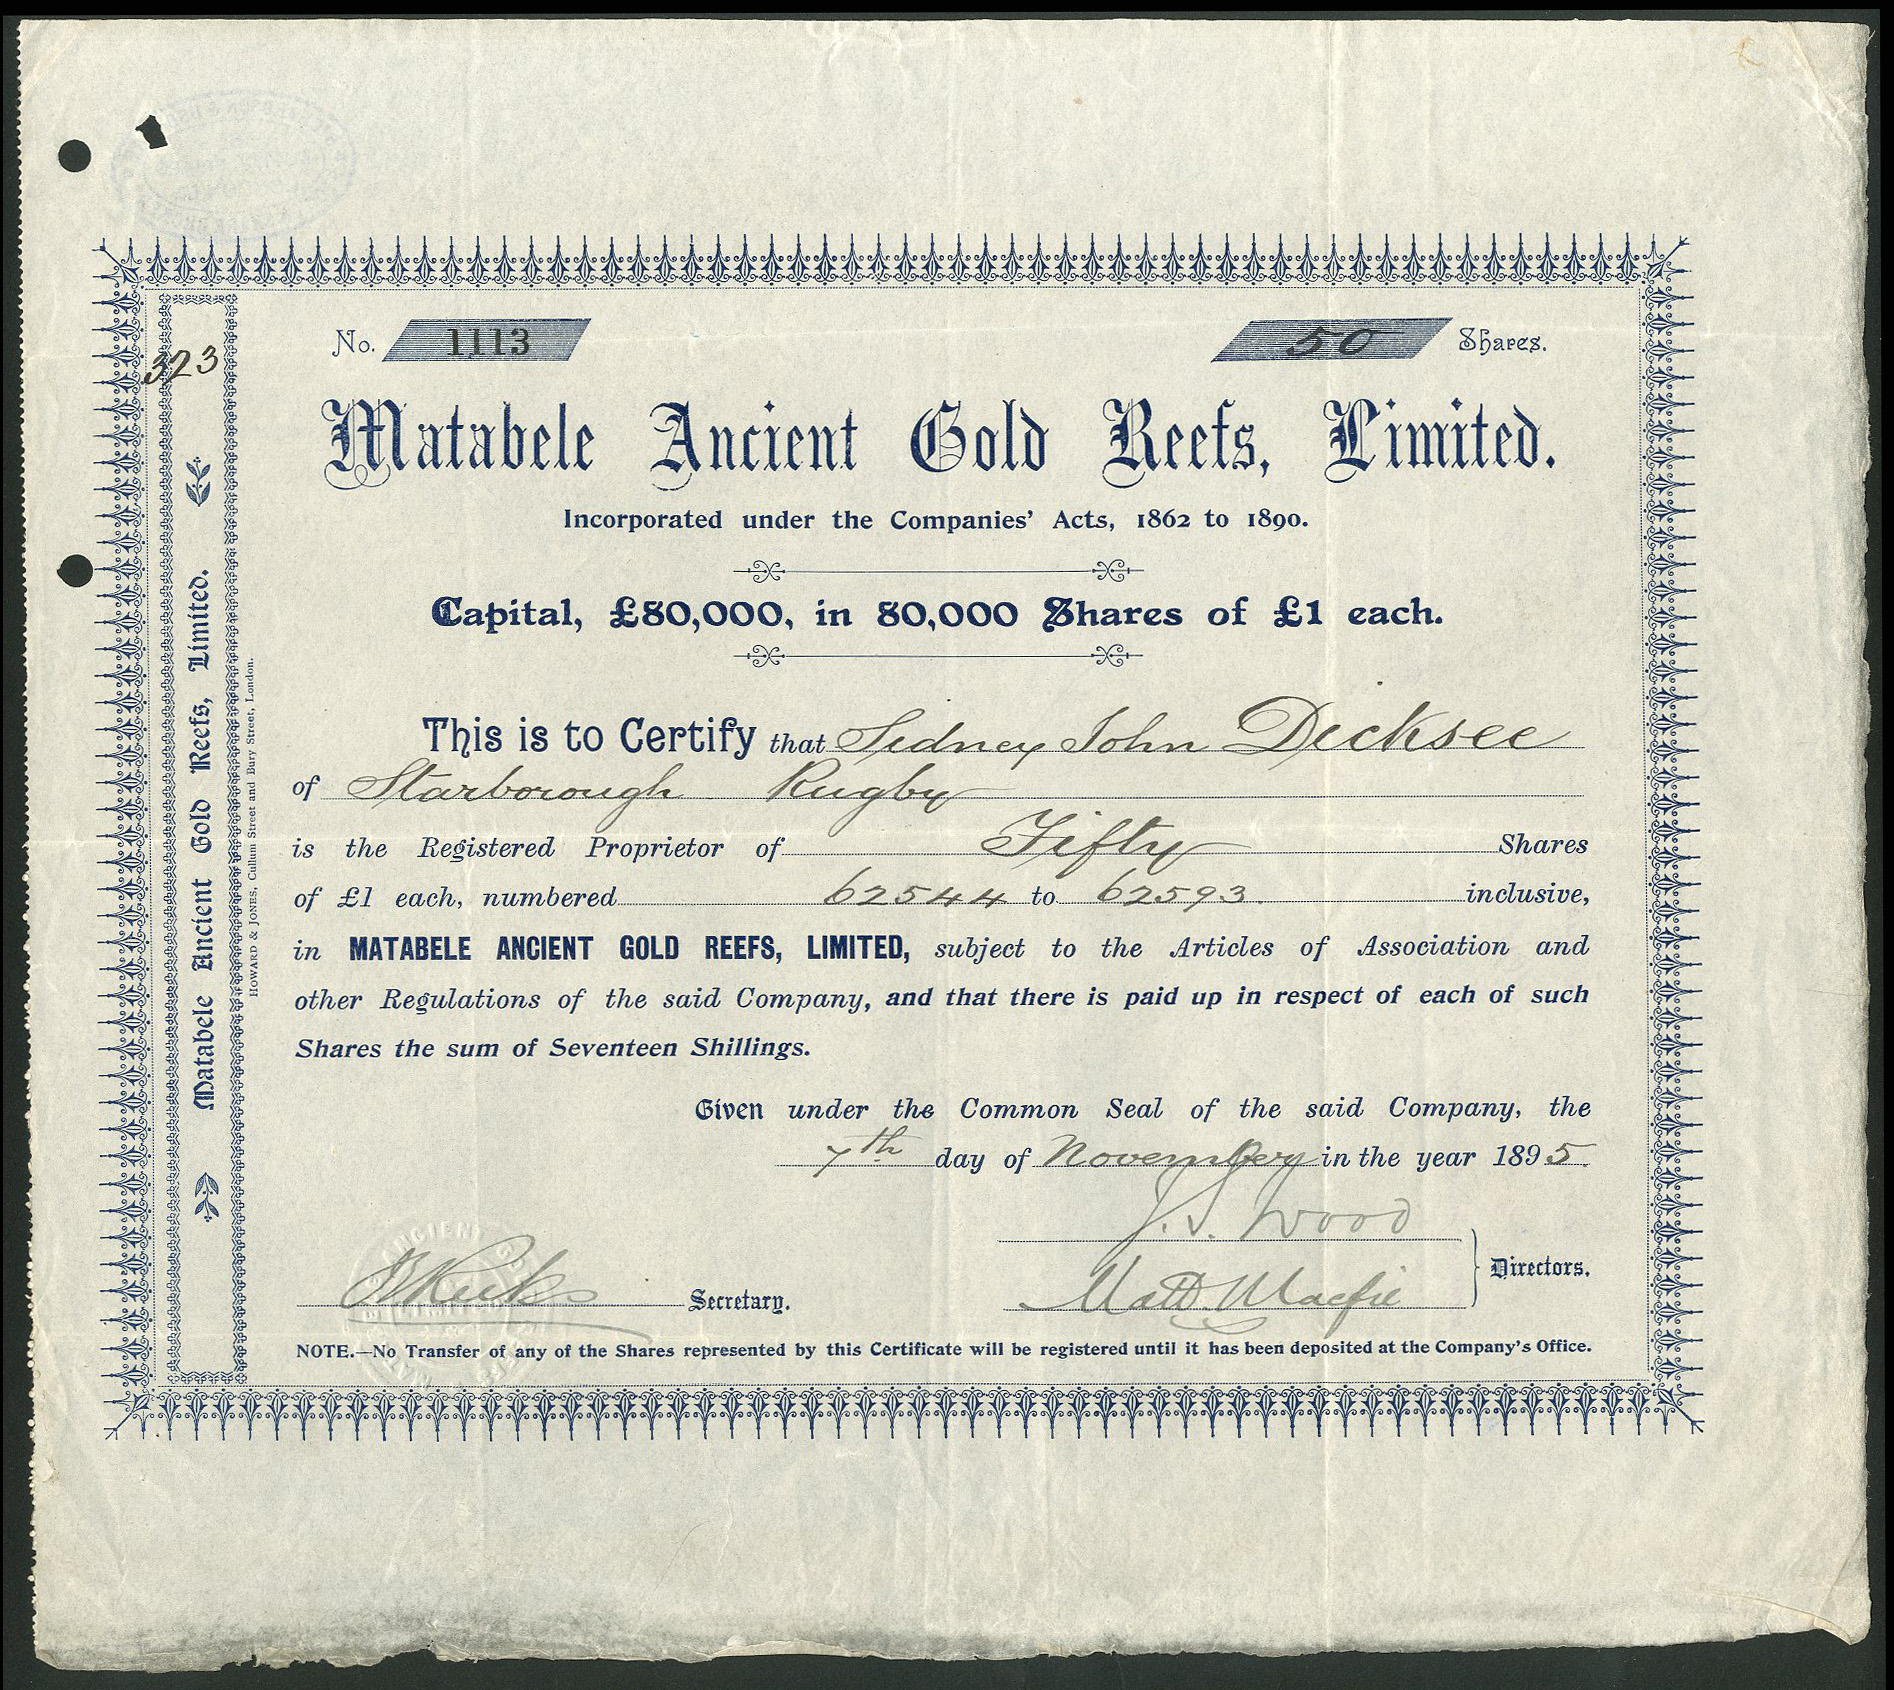 No. 1113
50 Shares.
323
Matabele Ancient Gold Reefs, Limited.
Incorporated under the Companies' Acts, 1862 to 1890.
Capital, £80,000, in 80,000 Shares of £1 each.
This is to Certify that Sidney John Dicksee
of Starborough Rugby
is the Registered Proprietor of Fifty Shares
of £1 each, numbered 62544 to 62593. inclusive,
in MATABELE ANCIENT GOLD REEFS, LIMITED, subject to the Articles of Association and
other Regulations of the said Company, and that there is paid up in respect of each of such
Shares the sum of Seventeen Shillings.
Given under the Common Seal of the said Company, the
7th day of November in the year 1895.
J. S. Wood
Matt. Macfie
Directors.
Secretary.
NOTE.—No Transfer of any of the Shares represented by this Certificate will be registered until it has been deposited at the Company's Office.
Matabele Ancient Gold Reefs, Limited.
HOWARD & JONES, Cullum Street and Bury Street, London.